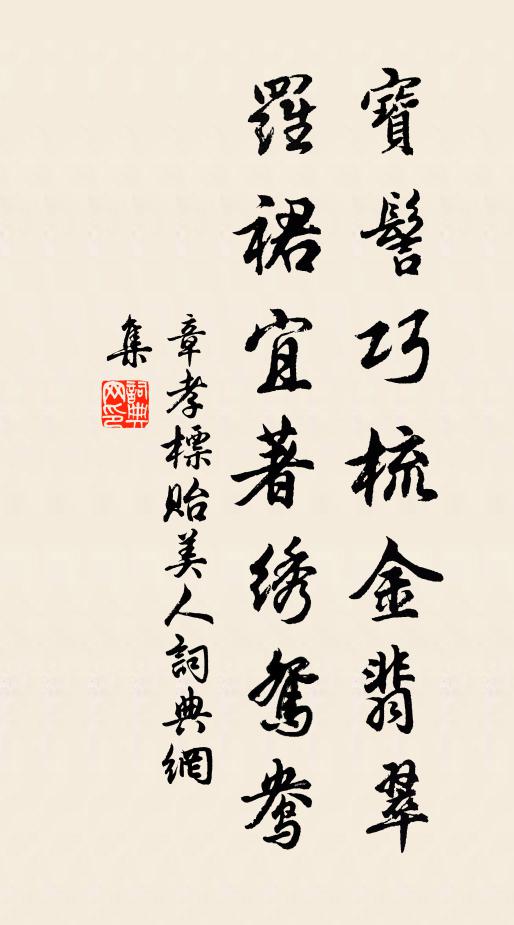 寶髻巧梳金翡翠
羅裙宜著绣鴛鴦
章孝標貽美人詞典網
集
詞典
网印